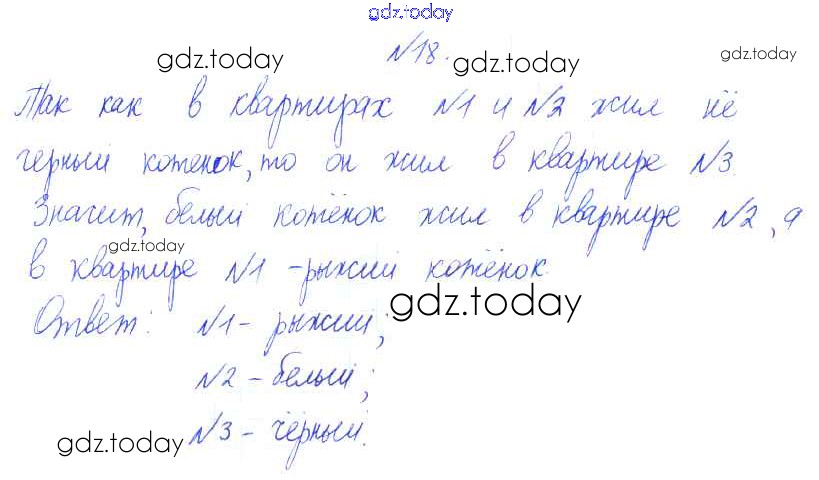 gdz.today
№18.
gdz.today gdz.today gdz.today
Так как в квартирах №1 и №2 жил не
черный котенок, то он жил в квартире №3.
Значит, белый котёнок жил в квартире №2, а
gdz.today
в квартире №1 - рыжий котёнок.
gdz.today
Ответ: №1 - рыжий;
№2 - белый;
gdz.today
№3 - чёрный.